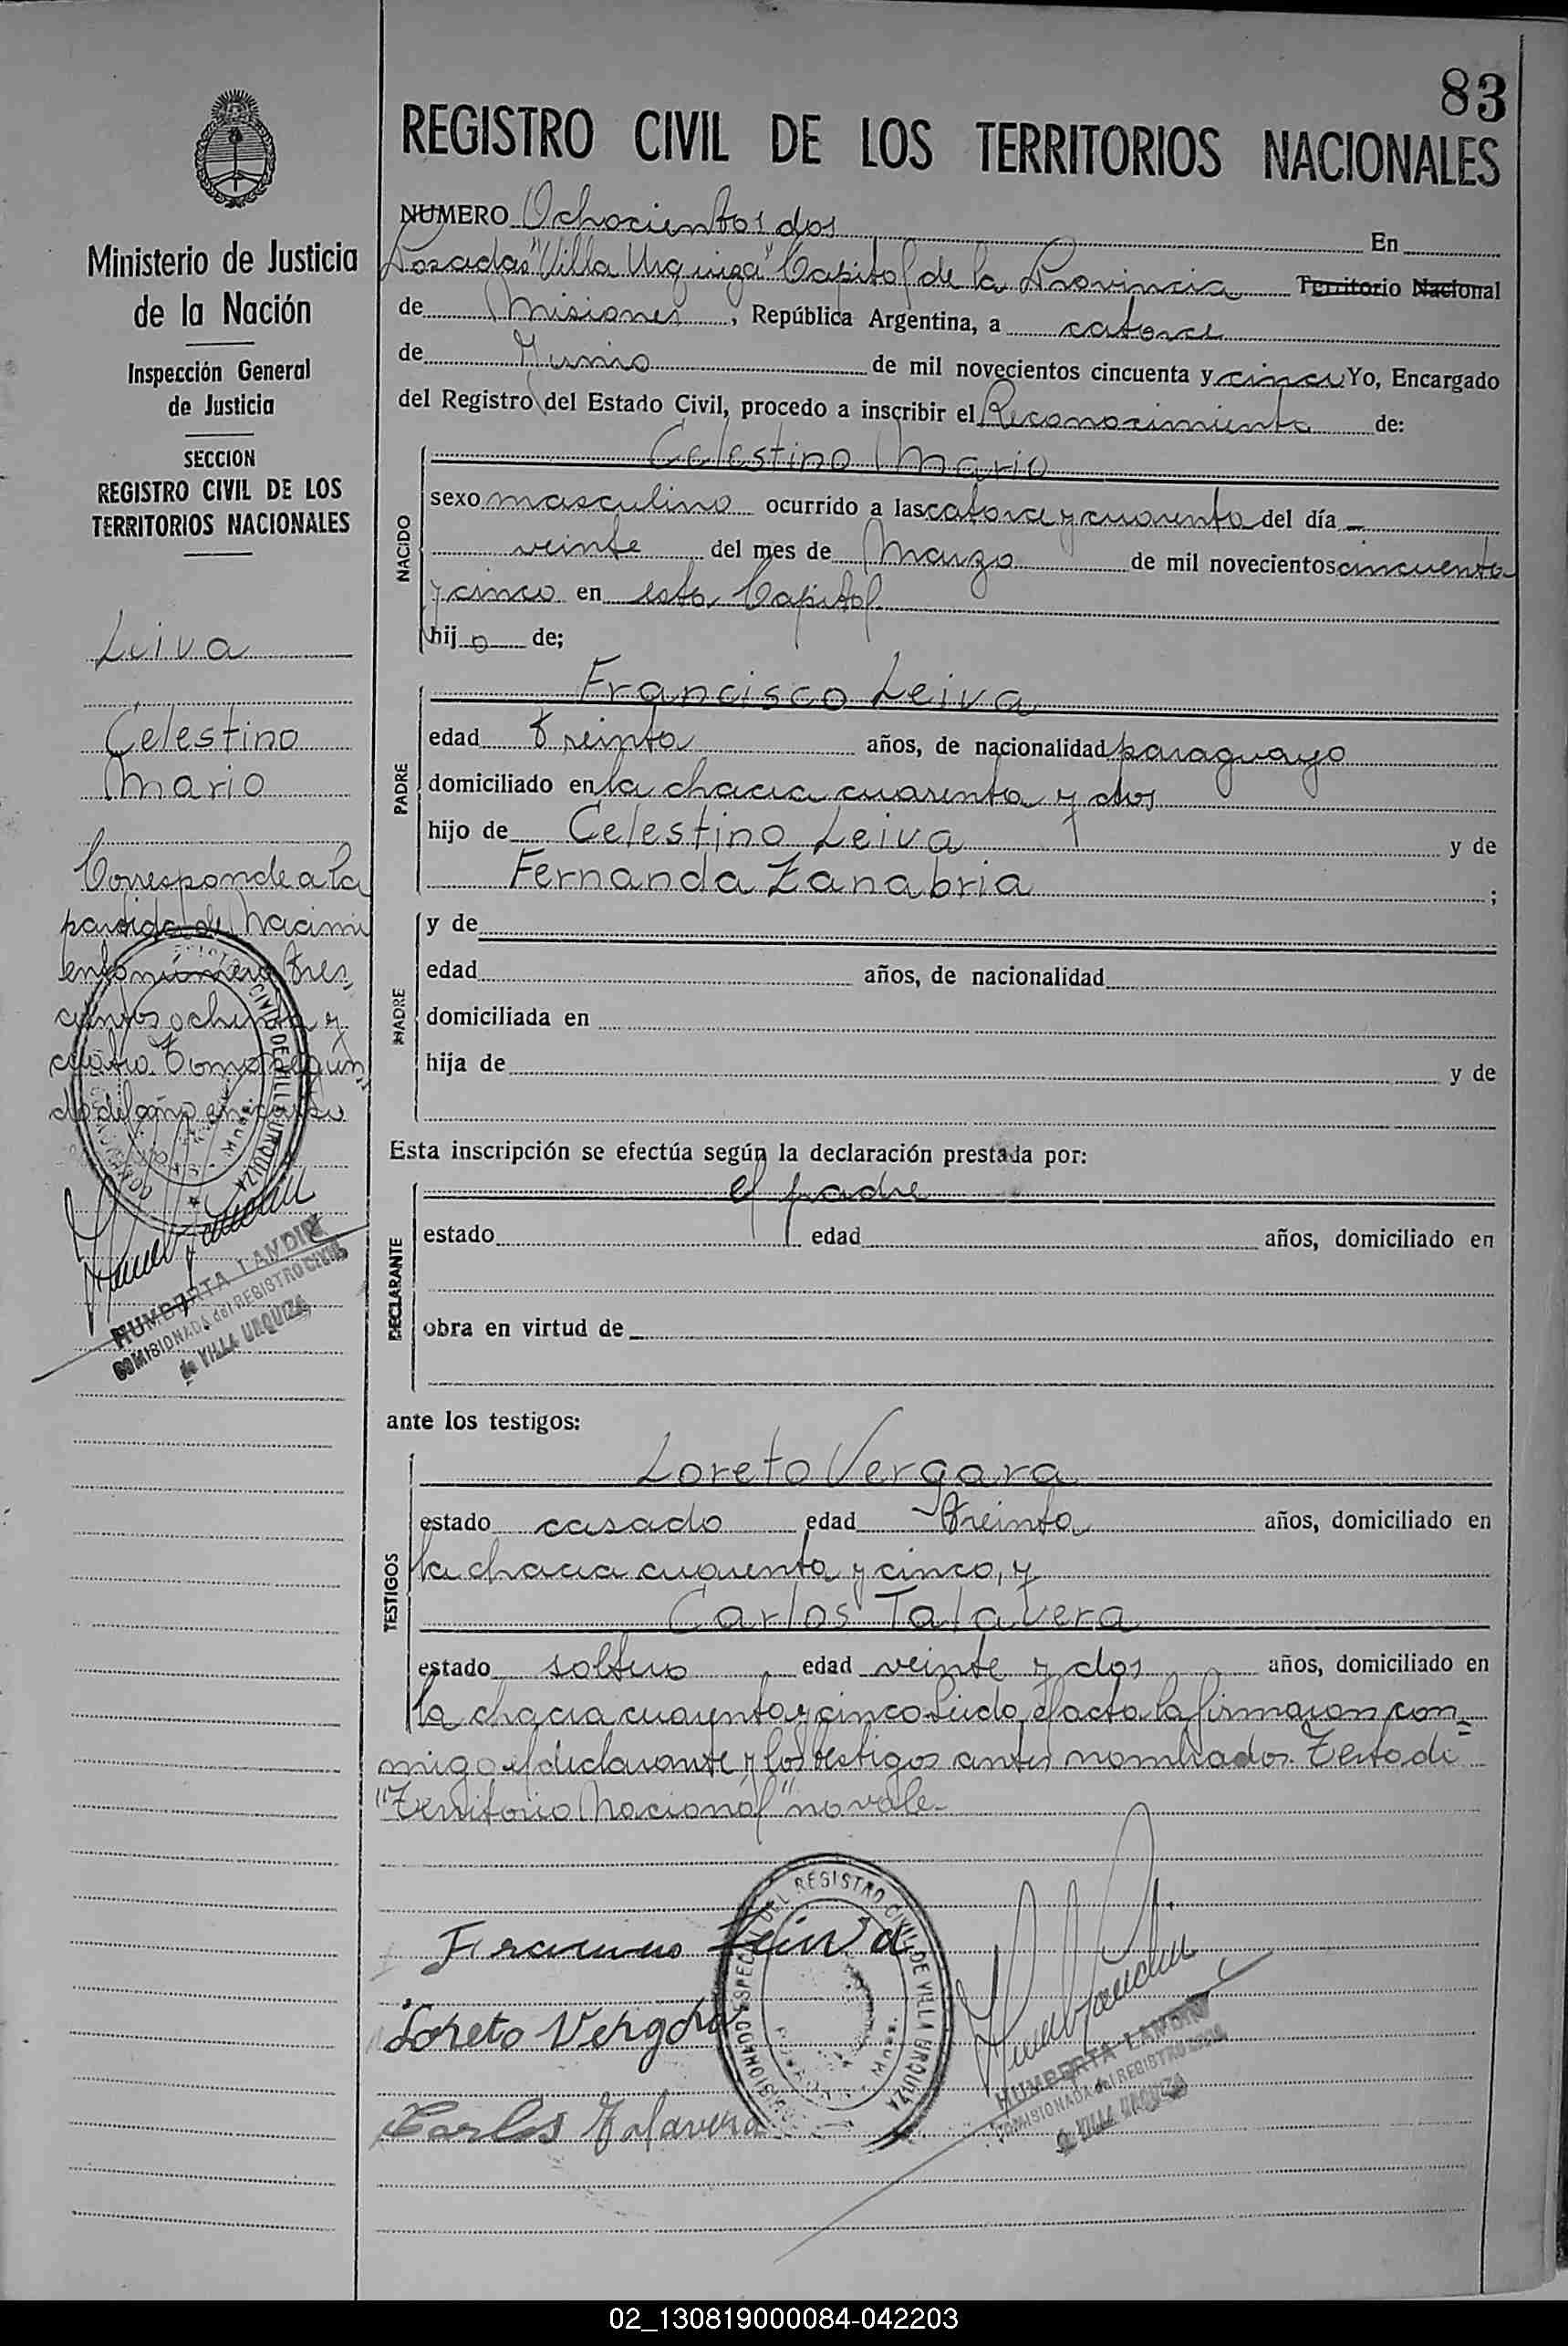 83
REGISTRO CIVIL DE LOS TERRITORIOS NACIONALES
Ministerio de Justicia
de la Nación
Inspección General
de Justicia
SECCION
REGISTRO CIVIL DE LOS
TERRITORIOS NACIONALES
Leiva
Celestino
Mario
Corresponde a la
partida de Nacimi
ento número tres,
cientos ochenta y
cuatro Tomo segun,
do del año en curso
HUMBERTA LANDIN
COMISIONADA del REGISTRO CIVIL
de VILLA URQUIZA
NUMERO Ochocientos dos En
Posadas "Villa Urquiza" Capital de la Provincia Territorio Nacional
de Misiones, República Argentina, a catorce
de Junio de mil novecientos cincuenta y cinco Yo, Encargado
del Registro del Estado Civil, procedo a inscribir el Reconocimiento de:
NACIDO
Celestino Mario
sexo masculino ocurrido a las catorce y cuarenta del día
veinte del mes de Marzo de mil novecientos cincuenta
y cinco en esta Capital
hijo de;
PADRE
Francisco Leiva
edad treinta años, de nacionalidad paraguayo
domiciliado en la chacra cuarenta y dos
hijo de Celestino Leiva y de
Fernanda Zanabria ;
MADRE
y de
edad años, de nacionalidad
domiciliada en
hija de y de
Esta inscripción se efectúa según la declaración prestada por:
DECLARANTE
el padre
estado edad años, domiciliado en
obra en virtud de
ante los testigos:
TESTIGOS
Loreto Vergara
estado casado edad treinta años, domiciliado en
la chacra cuarenta y cinco, y
Carlos Talavera
estado soltero edad veinte y dos años, domiciliado en
la chacra cuarenta y cinco. Leido el acta la firmaron con=
migo el declarante y los testigos antes nombrados. Testado
"Territorio Nacional" no vale.
Francisco Leiva
Loreto Vergara
Carlos Talavera
DEL REGISTRO CIVIL DE VILLA URQUIZA
HUMBERTA LANDIN
COMISIONADA del REGISTRO CIVIL
de VILLA URQUIZA
02_130819000084-042203